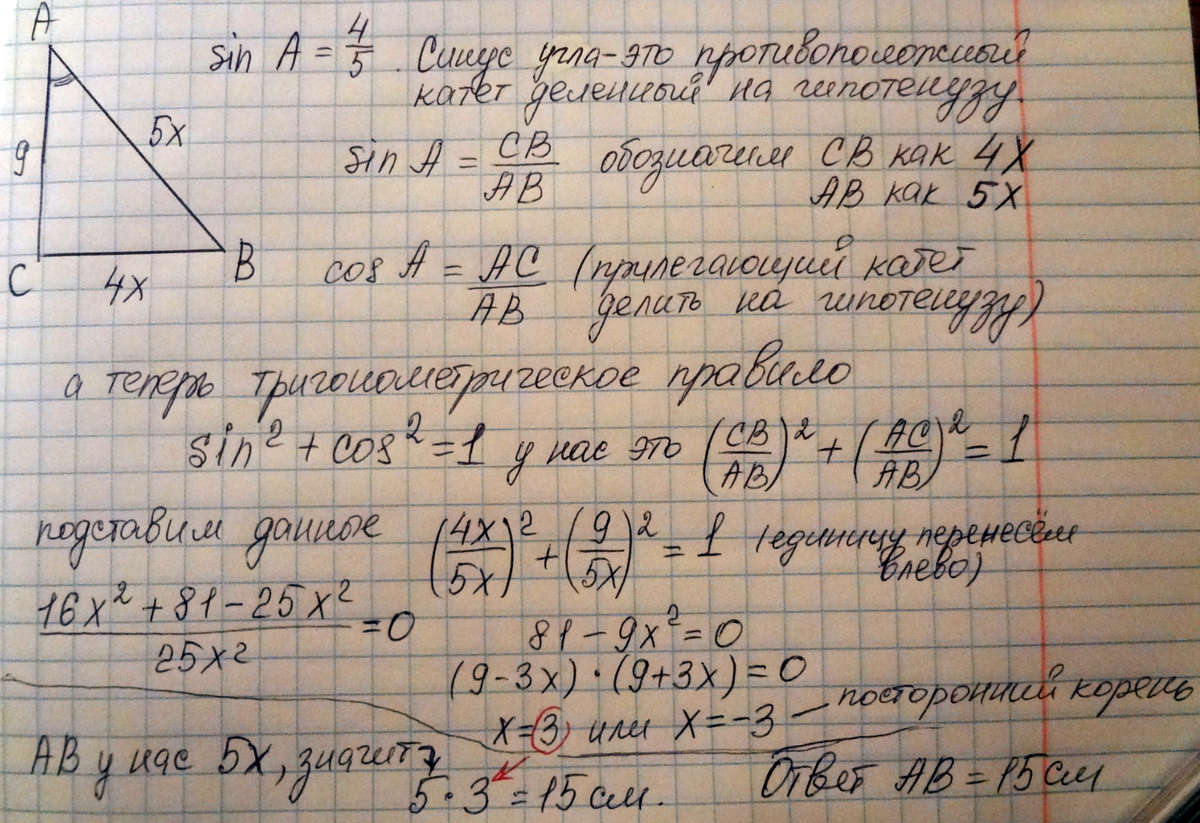 A
9
5x
C
4x
B
sin A = 4/5 . Синус угла-это противоположный
катет деленный на гипотенузу.
sin A = CB/AB обозначим CB как 4X
AB как 5X
cos A = AC/AB (прилегающий катет
делить на гипотенузу)
а теперь тригонометрическое правило
sin² + cos² = 1 у нас это (CB/AB)² + (AC/AB)² = 1
подставим данные (4x/5x)² + (9/5x)² = 1 (единицу перенесём
влево)
(16x² + 81 - 25x²)/25x² = 0
81 - 9x² = 0
(9-3x)·(9+3x) = 0
x=3 или x=-3 — посторонний корень
AB у нас 5x, значит
5·3 = 15 см.
Ответ AB = 15 см